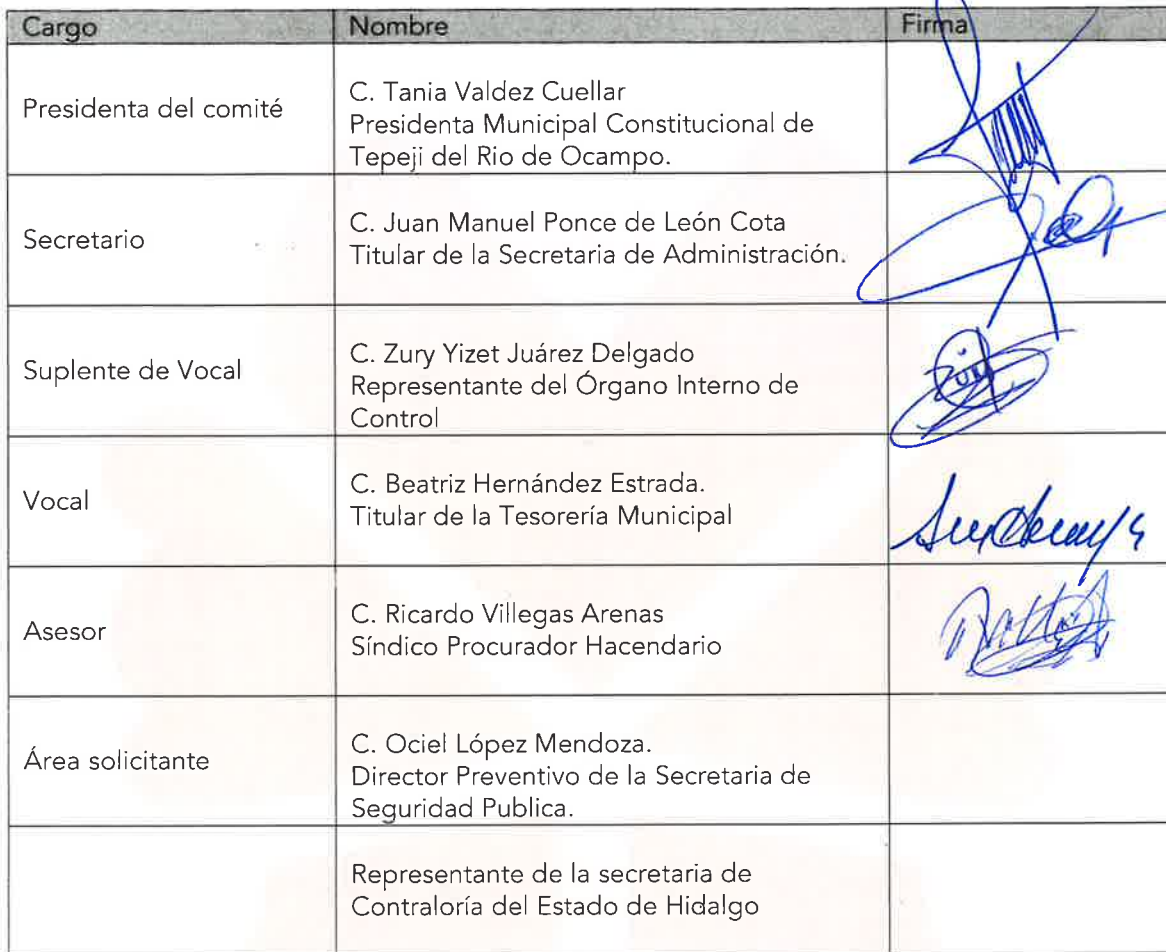 Cargo Nombre Firma
Presidenta del comité
C. Tania Valdez Cuellar
Presidenta Municipal Constitucional de
Tepeji del Rio de Ocampo.
Secretario
C. Juan Manuel Ponce de León Cota
Titular de la Secretaria de Administración.
Suplente de Vocal
C. Zury Yizet Juárez Delgado
Representante del Órgano Interno de
Control
Vocal
C. Beatriz Hernández Estrada.
Titular de la Tesorería Municipal
Asesor
C. Ricardo Villegas Arenas
Síndico Procurador Hacendario
Área solicitante
C. Ociel López Mendoza.
Director Preventivo de la Secretaria de
Seguridad Publica.
Representante de la secretaria de
Contraloría del Estado de Hidalgo